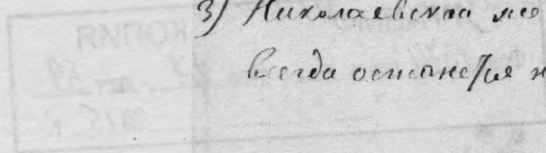 3) Николаевская же
всегда останется н